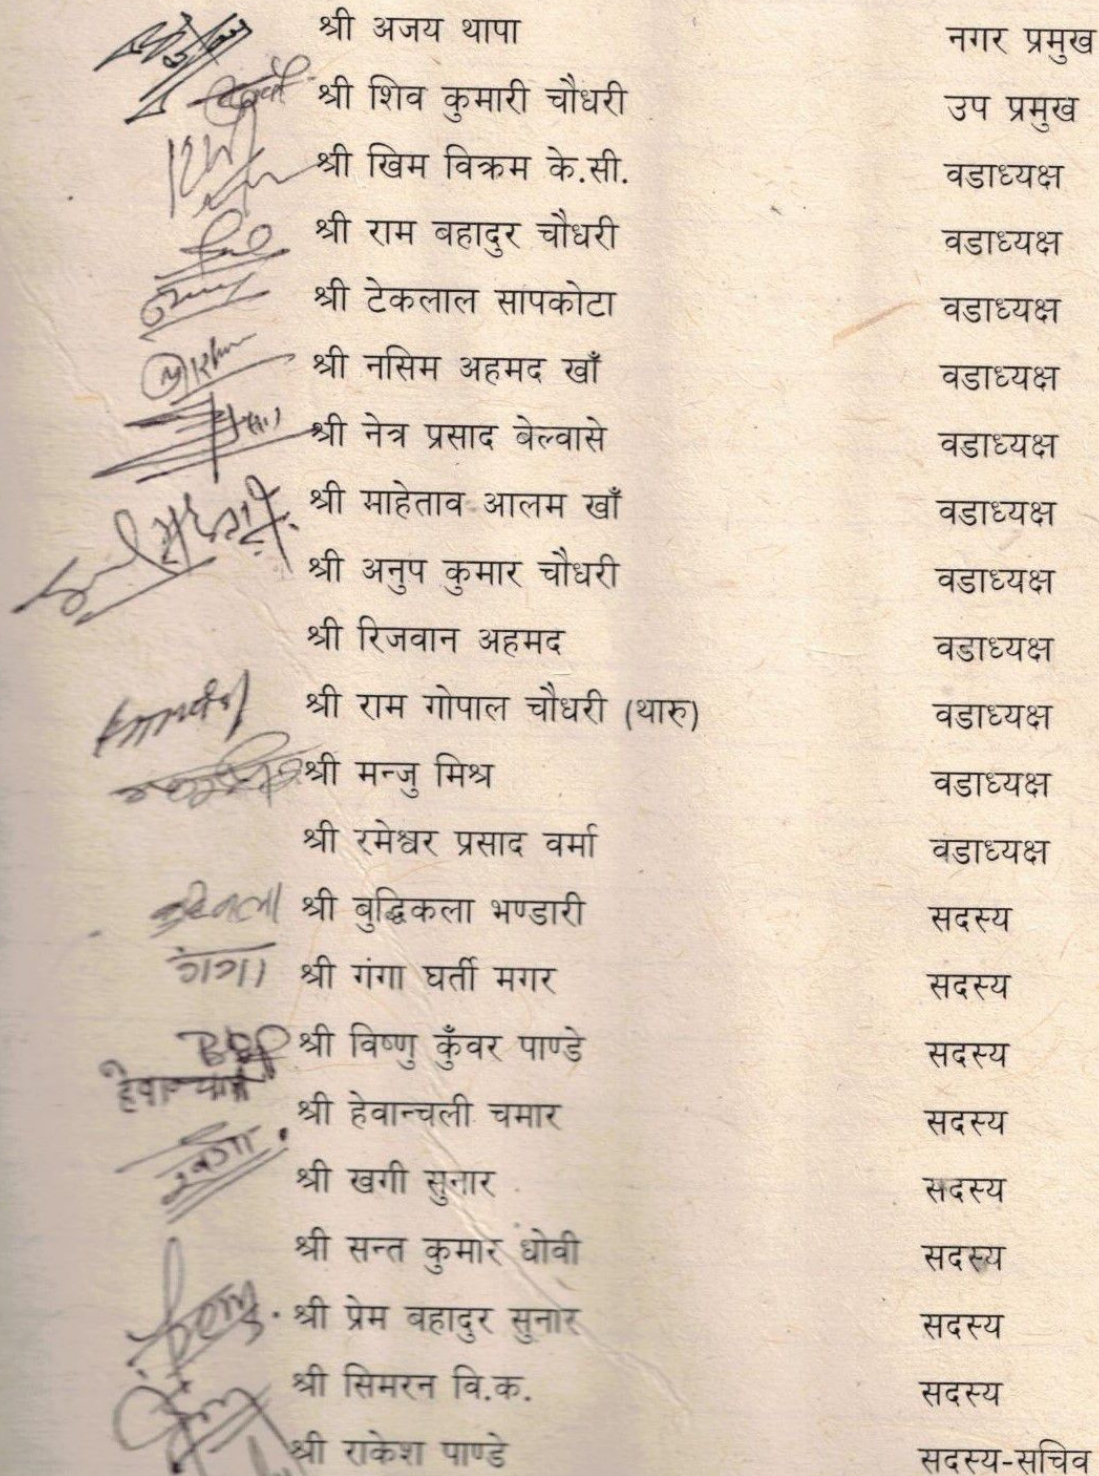 श्री अजय थापा नगर प्रमुख
श्री शिव कुमारी चौधरी उप प्रमुख
श्री खिम विक्रम के.सी. वडाध्यक्ष
श्री राम बहादुर चौधरी वडाध्यक्ष
श्री टेकलाल सापकोटा वडाध्यक्ष
श्री नसिम अहमद खाँ वडाध्यक्ष
श्री नेत्र प्रसाद बेल्वासे वडाध्यक्ष
श्री माहेताव आलम खाँ वडाध्यक्ष
श्री अनुप कुमार चौधरी वडाध्यक्ष
श्री रिजवान अहमद वडाध्यक्ष
श्री राम गोपाल चौधरी (थारु) वडाध्यक्ष
श्री मन्जु मिश्र वडाध्यक्ष
श्री रमेश्वर प्रसाद वर्मा वडाध्यक्ष
श्री बुद्धिकला भण्डारी सदस्य
गंगा श्री गंगा घर्ती मगर सदस्य
श्री विष्णु कुँवर पाण्डे सदस्य
श्री हेवान्चली चमार सदस्य
श्री खगी सुनार सदस्य
श्री सन्त कुमार धोवी सदस्य
श्री प्रेम बहादुर सुनार सदस्य
श्री सिमरन वि.क. सदस्य
श्री राकेश पाण्डे सदस्य-सचिव